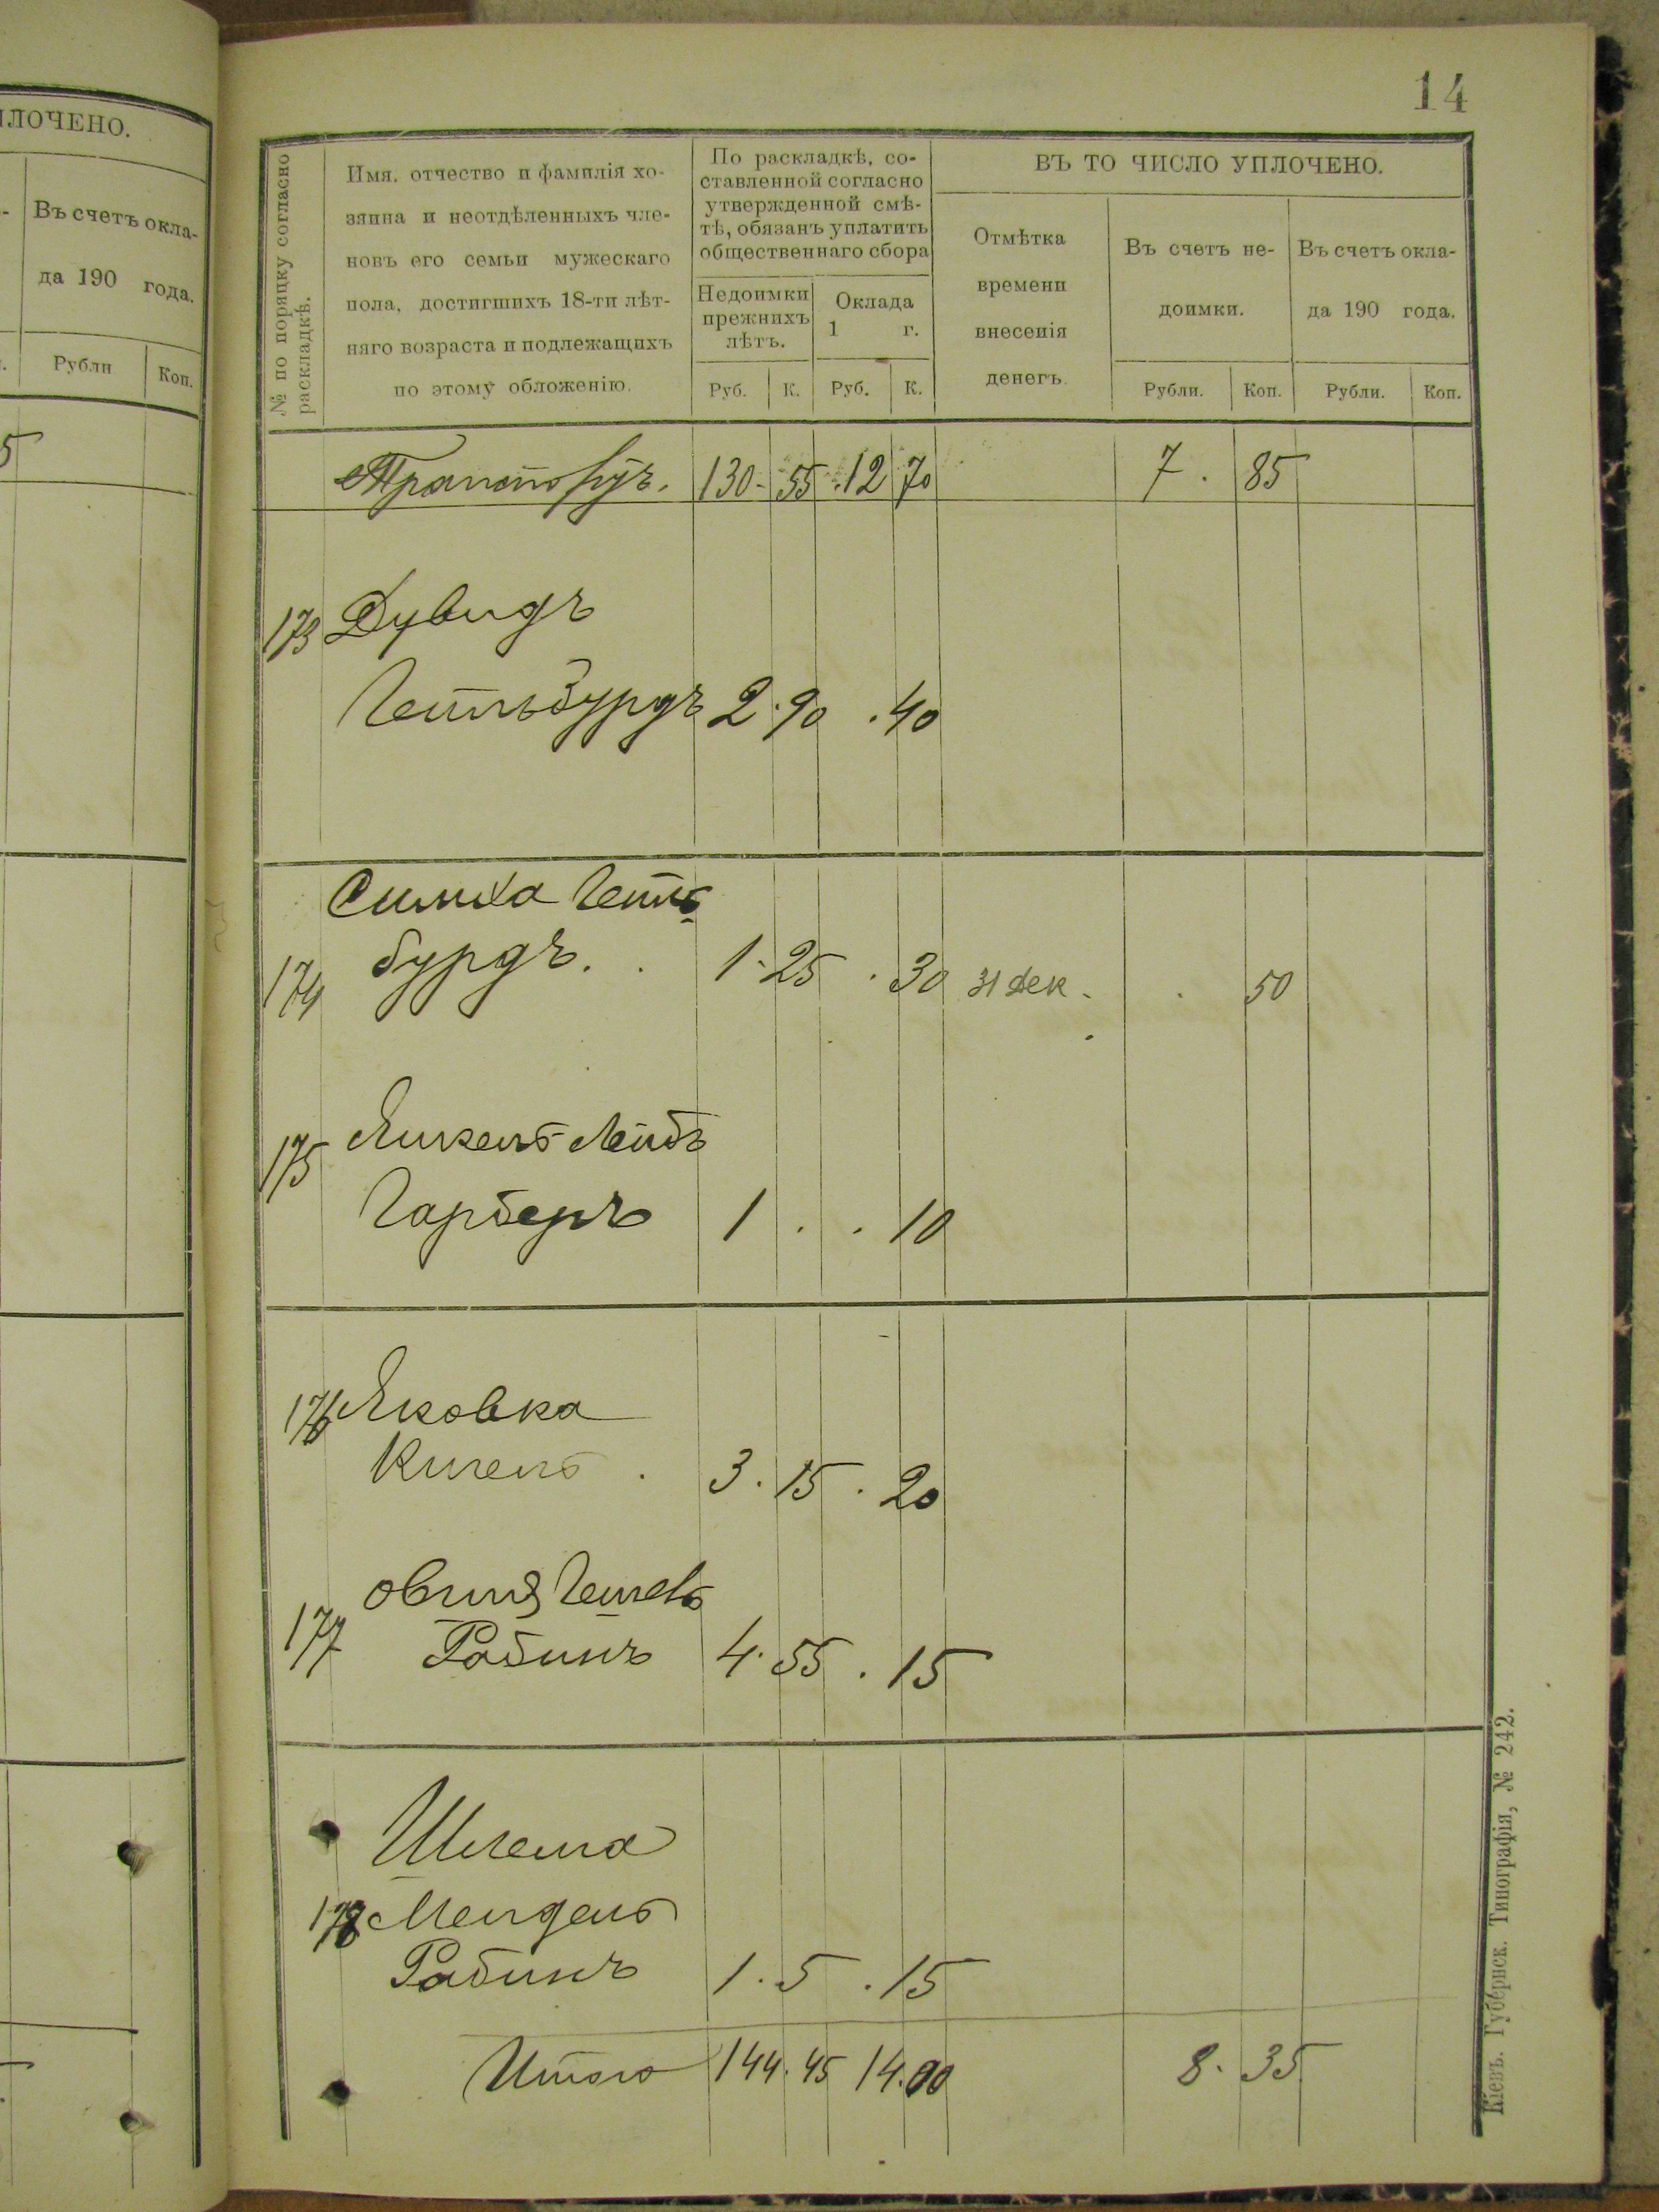 ПЛОЧЕНО.
Въ счетъ окла-
да 190 года.
Рубли Коп.
5
14
№ по порядку согласно
раскладкѣ.
Имя, отчество и фамилія хо-
зяина и неотдѣленныхъ чле-
новъ его семьи мужескаго
пола, достигшихъ 18-ти лѣт-
няго возраста и подлежащихъ
по этому обложенію.
По раскладкѣ, со-
ставленной согласно
утвержденной смѣ-
тѣ, обязанъ уплатить
общественнаго сбора
Недоимки
прежнихъ
лѣтъ.
Руб. К.
Оклада
1 г.
Руб. К.
ВЪ ТО ЧИСЛО УПЛОЧЕНО.
Отмѣтка
времени
внесенія
денегъ.
Въ счетъ не-
доимки.
Рубли. Коп.
Въ счетъ окла-
да 190 года.
Рубли. Коп.
130 - 55 . 12 70 7 . 85
173 Дувидъ
Гетльбурдъ 2 . 90 . 40
Симха Гетль
174 бурдъ . . 1 - 25 . 30 31 дек . . 50
175 Янкель Лейбъ
Гарберъ 1 . . 10
176 Яковка
Кигель . 3 . 15 . 20
177
Рабинъ 4 . 55 . 15
Шлема
178 Мендель
Рабинъ 1 . 5 . 15
Итого 144 . 45 14 . 00 8 . 35
Кіевъ. Губернск. Типографія, № 242.